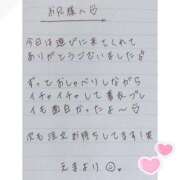 お兄様へ♡
今日は遊びに来てくれて
ありがとうございました♪
ずっとおしゃべりしながら
イチャイチャして着衣プレ
イも面白かったよ〜♡
次も注文お待ちしてます!笑
えまより☺